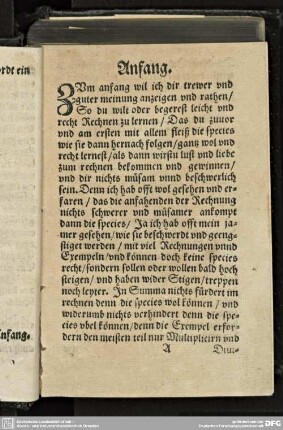 rdt ein
Anfang.
ZVm anfang wil ich dir trewer vnd
guter meinung anzeigen vnd rathen/
So du wilt oder begerest leicht vnd
recht Rechnen zu lernen/ Das du zuuor
vnd am ersten mit allem fleiß die species
wie sie dann hernach folgen/ gantz wol vnd
recht lernest/ als dann wirstu lust vnd liebe
zum rechnen bekommen vnd gewinnen/
vnd dir nichts müsam vnnd beschwerlich
sein. Denn ich hab offt wol gesehen vnd er-
faren/ das die anfahenden der Rechnung
nichts schwerer vnd müsamer ankompt
dann die species/ Ja ich hab offt mein ja-
mer gesehen/ wie sie beschwerdt vnd geeng-
stiget werden/ mit viel Rechnungen vnnd
Exempeln/ vnd können doch keine species
recht/ sondern sollen oder wollen bald hoch
steigen/ vnd haben wider Stigen/ treppen
noch leyter. In Summa nichts fürdert im
rechnen denn die species wol können/ vnd
widerumb nichts verhindert denn die spe-
cies vbel können/ denn die Exempel erfor-
dern den meisten teil nur Multiplicirn vnd
A
nfang.